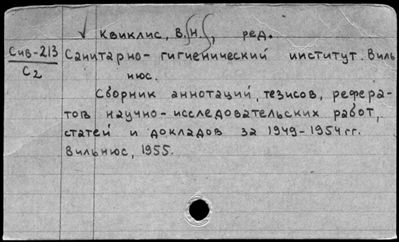 Квиклис, В.Н., ред.
Сив-213
С2
Санитарно-гигиенический институт. Виль
нюс.
Сборник аннотаций, тезисов, рефера-
тов научно-исследовательских работ,
статей и докладов за 1949-1954гг.
Вильнюс, 1955.